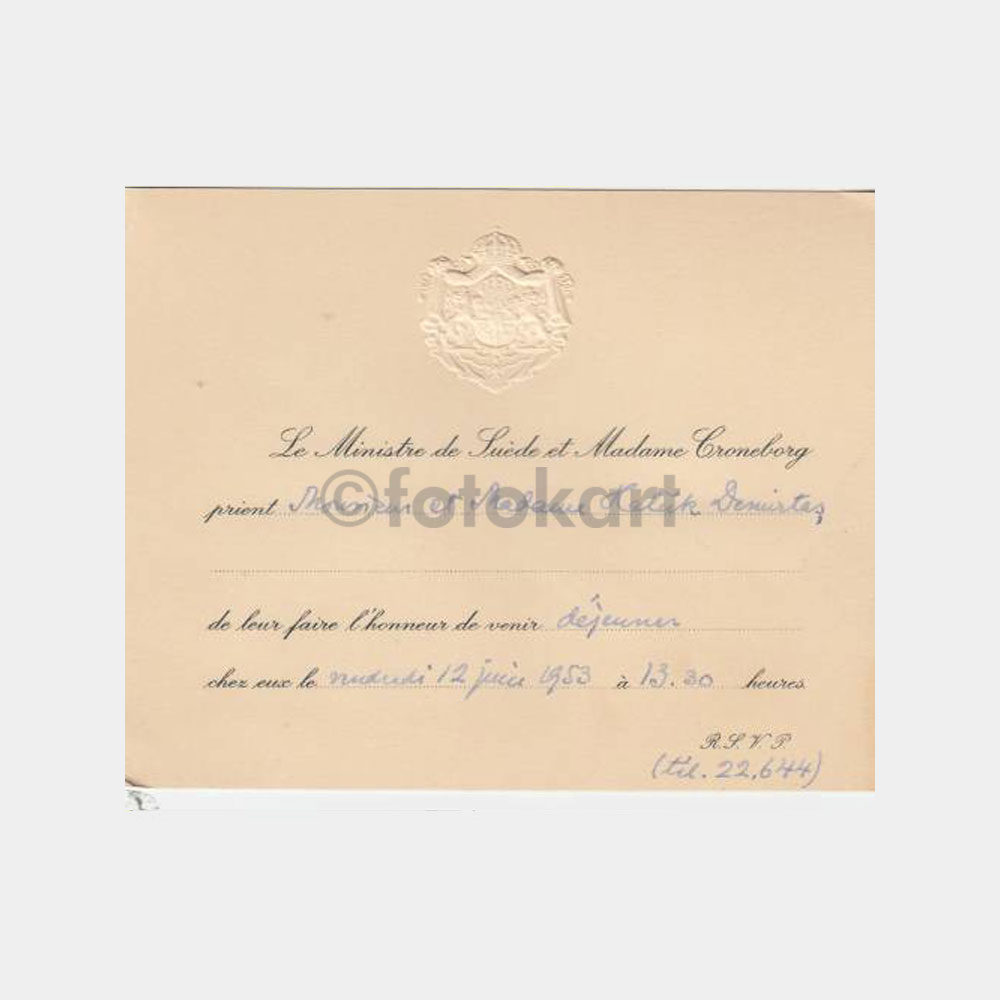 Le Ministre de Suède et Madame Croneborg
prient Monsieur et Madame Demirtaş
©fotokart
de leur faire l'honneur de venir déjeuner
chez eux le vendredi 12 juin 1953 à 13.30 heures
R.S.V.P.
(tél. 22.644)